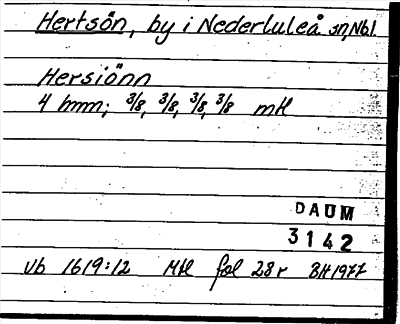 Hertsön, by i Nederluleå sn, Nbl.
Hersiönn
4 bmn; 3/8, 3/8, 3/8, 3/8 mtl
DAUM
3142
Vb 1619:12 Mtl fol 28r BH1977